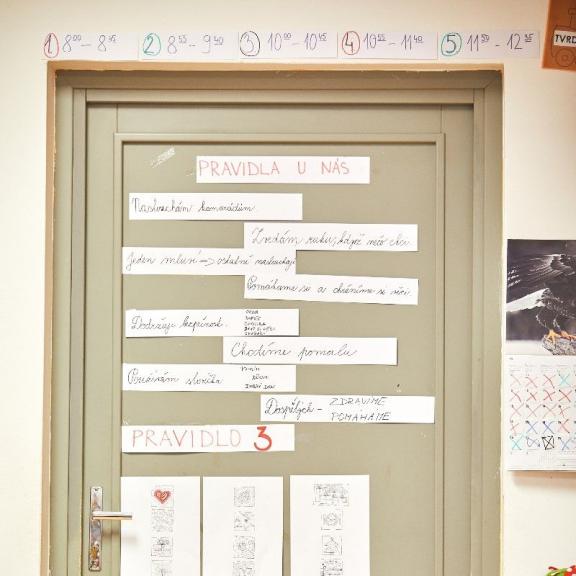 1 8⁰⁰ – 8⁴⁵ 2 8⁵⁵ – 9⁴⁰ 3 10⁰⁰ – 10⁴⁵ 4 10⁵⁵ – 11⁴⁰ 5 11⁵⁰ – 12³⁵
TVRD
PRAVIDLA U NÁS
Naslouchám kamarádům.
Zvedám ruku, když něco chci.
Jeden mluví => ostatní naslouchají
Pomáháme si a chráníme si věci.
Dodržuji bezpečnost.
Chodíme pomalu
Používám slovíčka
PROSÍM
DĚKUJI
DOBRÝ DEN
Dospělých – ZDRAVÍME
POMÁHÁME
PRAVIDLO 3